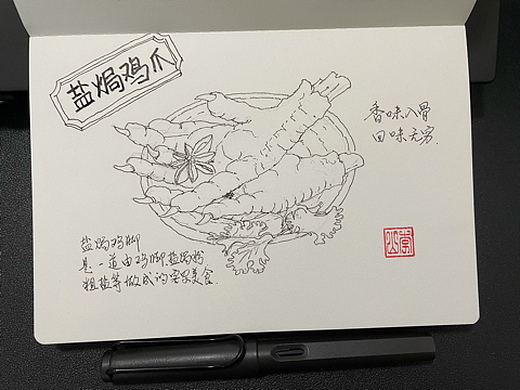 盐焗鸡爪
香味入骨
回味无穷.
盐焗鸡脚
是一道由鸡脚、盐焗粉
粗盐等做成的客家美食.